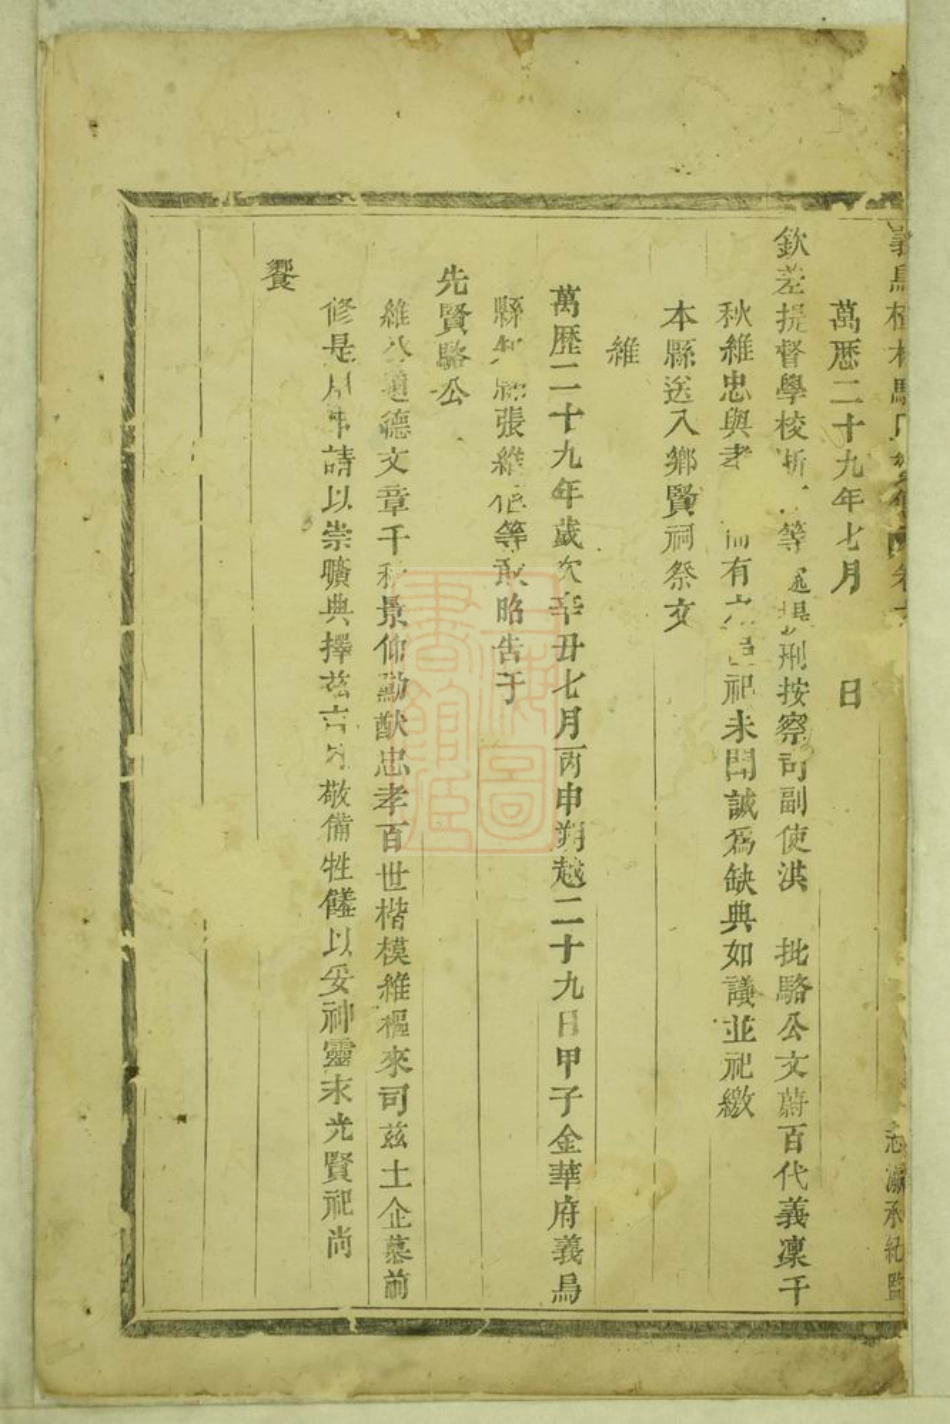 義烏
萬曆二十九年七月 日
欽差提督學校浙 等 提刑按察司副使洪 批駱公文蔚百代義凜千
秋維忠與孝 有 祀未聞誠為缺典如議並祀繳
本縣送入鄉賢祠祭文
維
萬歷二十九年歲次辛丑七月丙申朔越二十九日甲子金華府義烏
縣 張維 等敢昭告于
先賢駱公
維公道德文章千秋景仰勳猷忠孝百世楷模維樞來司茲土企慕前
修是用申請以崇曠典擇茲吉 敬備牲饈以妥神靈末光賢祀尚
饗
承紀監